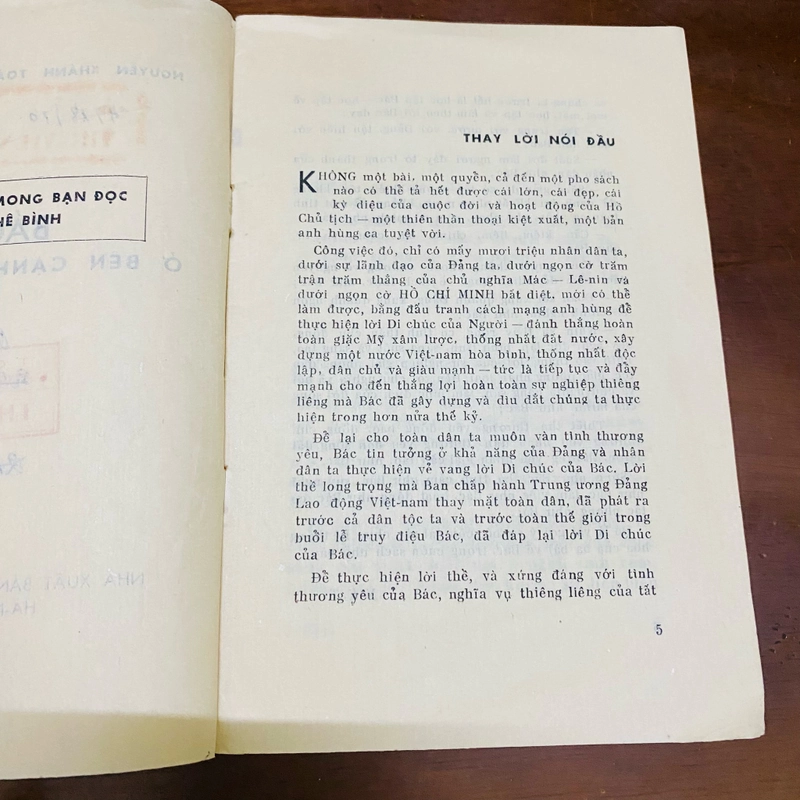 MONG BẠN ĐỌC
PHÊ BÌNH
THAY LỜI NÓI ĐẦU
KHÔNG một bài, một quyển, cả đến một pho sách
nào có thể tả hết được cái lớn, cái đẹp, cái
kỳ diệu của cuộc đời và hoạt động của Hồ
Chủ tịch — một thiên thần thoại kiệt xuất, một bản
anh hùng ca tuyệt vời.
Công việc đó, chỉ có mấy mươi triệu nhân dân ta,
dưới sự lãnh đạo của Đảng ta, dưới ngọn cờ trăm
trận trăm thắng của chủ nghĩa Mác — Lê-nin và
dưới ngọn cờ HỒ CHÍ MINH bất diệt, mới có thể
làm được, bằng đấu tranh cách mạng anh hùng để
thực hiện lời Di chúc của Người — đánh thắng hoàn
toàn giặc Mỹ xâm lược, thống nhất đất nước, xây
dựng một nước Việt-nam hòa bình, thống nhất độc
lập, dân chủ và giàu mạnh — tức là tiếp tục và đẩy
mạnh cho đến thắng lợi hoàn toàn sự nghiệp thiêng
liêng mà Bác đã gây dựng và dìu dắt chúng ta thực
hiện trong hơn nửa thế kỷ.
Để lại cho toàn dân ta muôn vàn tình thương
yêu, Bác tin tưởng ở khả năng của Đảng và nhân
dân ta thực hiện vẻ vang lời Di chúc của Bác. Lời
thề long trọng mà Ban chấp hành Trung ương Đảng
Lao động Việt-nam thay mặt toàn dân, đã phát ra
trước cả dân tộc ta và trước toàn thế giới trong
buổi lễ truy điệu Bác, đã đáp lại lời Di chúc
của Bác.
Để thực hiện lời thề, và xứng đáng với tình
thương yêu của Bác, nghĩa vụ thiêng liêng của tất
5